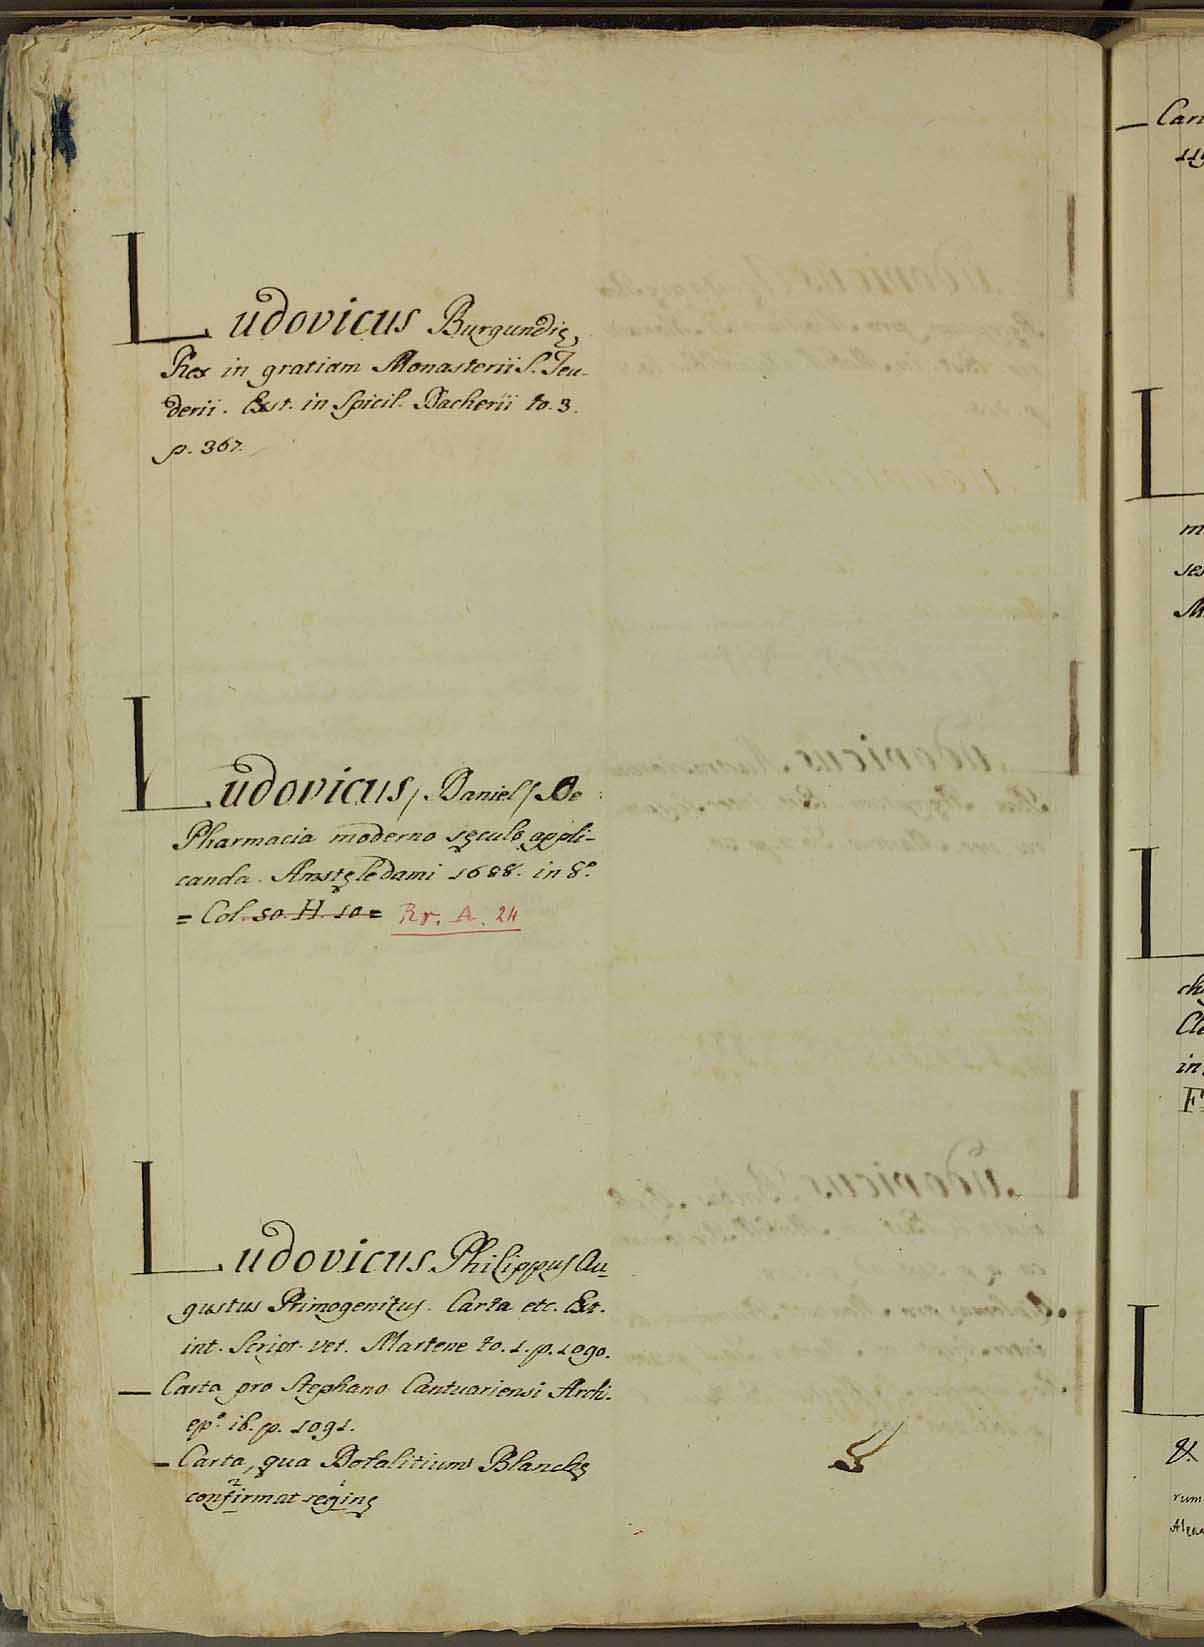 Ludovicus Burgundię,
Rex in gratiam Monasterii S. Teu-
derii. Exst. in Spicil. Dacherii to. 3.
p. 367.
Ludovicus, /Daniel/ De
Pharmacia moderno sęculo appli-
canda. Amstęledami 1688. in 8.º
= Col. 50. H. 10 = Rr. A. 24
Ludovicus Philippus Au-
gustus Primogenitus. Carta etc. Ext.
int. Script. vet. Martene to. 1. p. 1090.
— Carta pro Stephano Cantuariensi Archi-
epº. ib. p. 1091.
— Carta, qua Dotalitium Blanchę
confirmat reginę
— Car
119
L
m
ses
M
L
ch
Cle
in
F
L
&
rum
Alexa